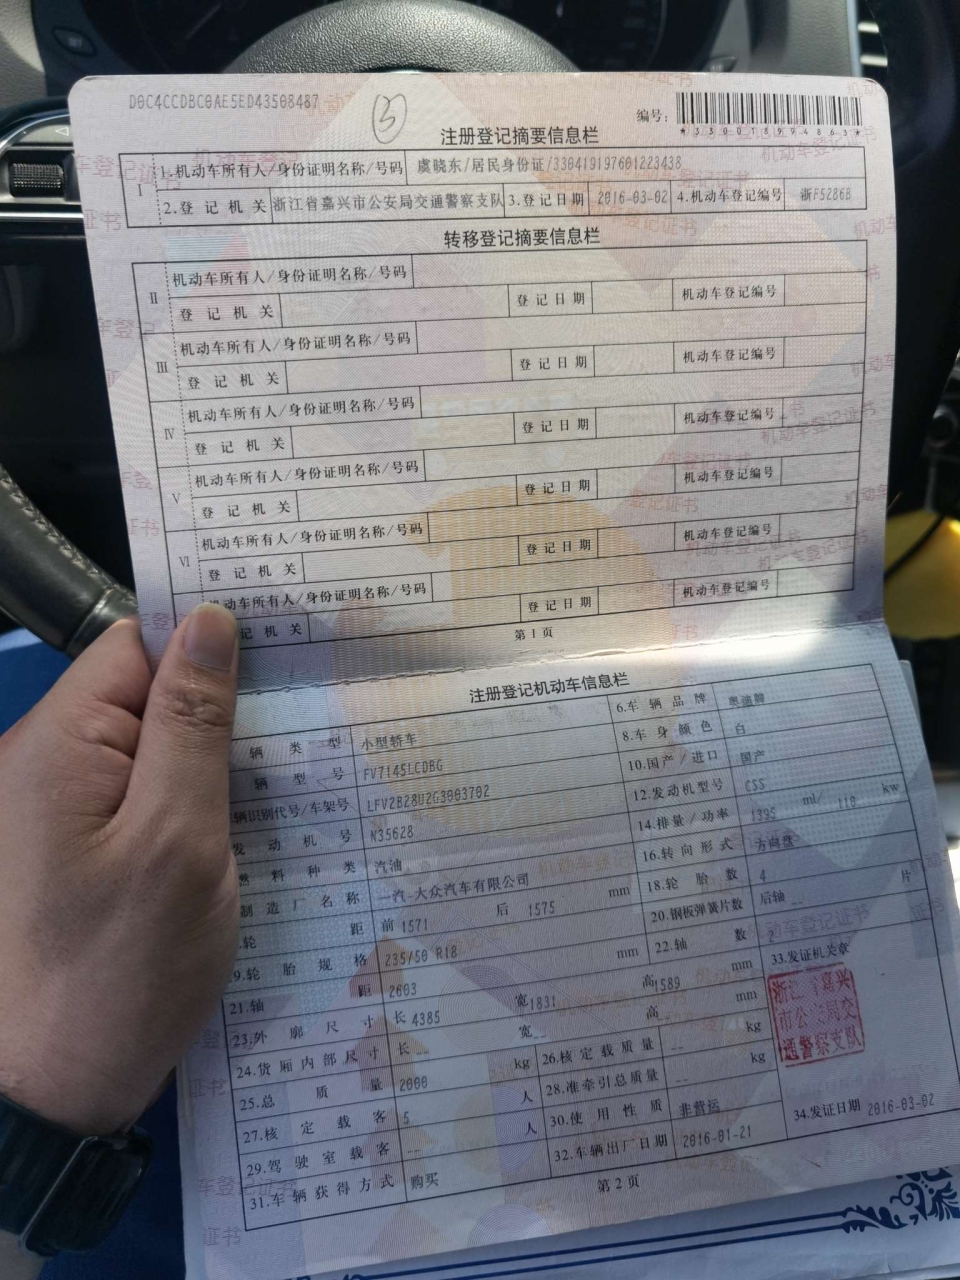 D0C4CCDBC0AE5ED43508487
③
编号:
*330018994863*
注册登记摘要信息栏
I 1.机动车所有人/身份证明名称/号码 虞晓东/居民身份证/330419197601223438
2.登记机关 浙江省嘉兴市公安局交通警察支队 3.登记日期 2016-03-02 4.机动车登记编号 浙F52868
转移登记摘要信息栏
II 机动车所有人/身份证明名称/号码
登记机关 登记日期 机动车登记编号
III 机动车所有人/身份证明名称/号码
登记机关 登记日期 机动车登记编号
IV 机动车所有人/身份证明名称/号码
登记机关 登记日期 机动车登记编号
V 机动车所有人/身份证明名称/号码
登记机关 登记日期 机动车登记编号
VI 机动车所有人/身份证明名称/号码
登记机关 登记日期 机动车登记编号
机动车所有人/身份证明名称/号码
记机关 登记日期 机动车登记编号
第1页
注册登记机动车信息栏
辆类型 小型轿车 6.车辆品牌 奥迪牌
辆型号 FV7145LCDBG 8.车身颜色 白
辆识别代号/车架号 LFV2B28U2G3003702 10.国产/进口 国产
发动机号 N35628 12.发动机型号 CSS
燃料种类 汽油 14.排量/功率 1395 ml/ 110 kw
制造厂名称 一汽-大众汽车有限公司 16.转向形式 方向盘
轮距 前 1571 后 1575 mm 18.轮胎数 4
19.轮胎规格 235/50 R18 20.钢板弹簧片数 后轴 -- 片
21.轴距 2603 mm 22.轴数 2
23.外廓尺寸 长 4385 宽 1831 高 1589 mm 33.发证机关章
24.货厢内部尺寸 长 -- 宽 -- 高 -- mm
浙江省嘉兴市公安局交通警察支队
25.总质量 2000 kg 26.核定载质量 -- kg
27.核定载客 5 人 28.准牵引总质量 -- kg
29.驾驶室载客 -- 人 30.使用性质 非营运
31.车辆获得方式 购买 32.车辆出厂日期 2016-01-21 34.发证日期 2016-03-02
第2页